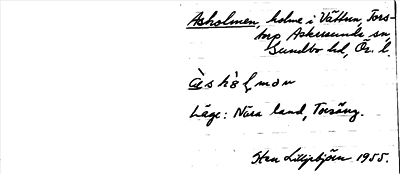 Asholmen, holme i Vättern, Tors-
torp Askersunds sn,
Sundbo hd, Ör. l.
Läge: Nära land, Torsäng.
Sten Liljebjörn 1955.